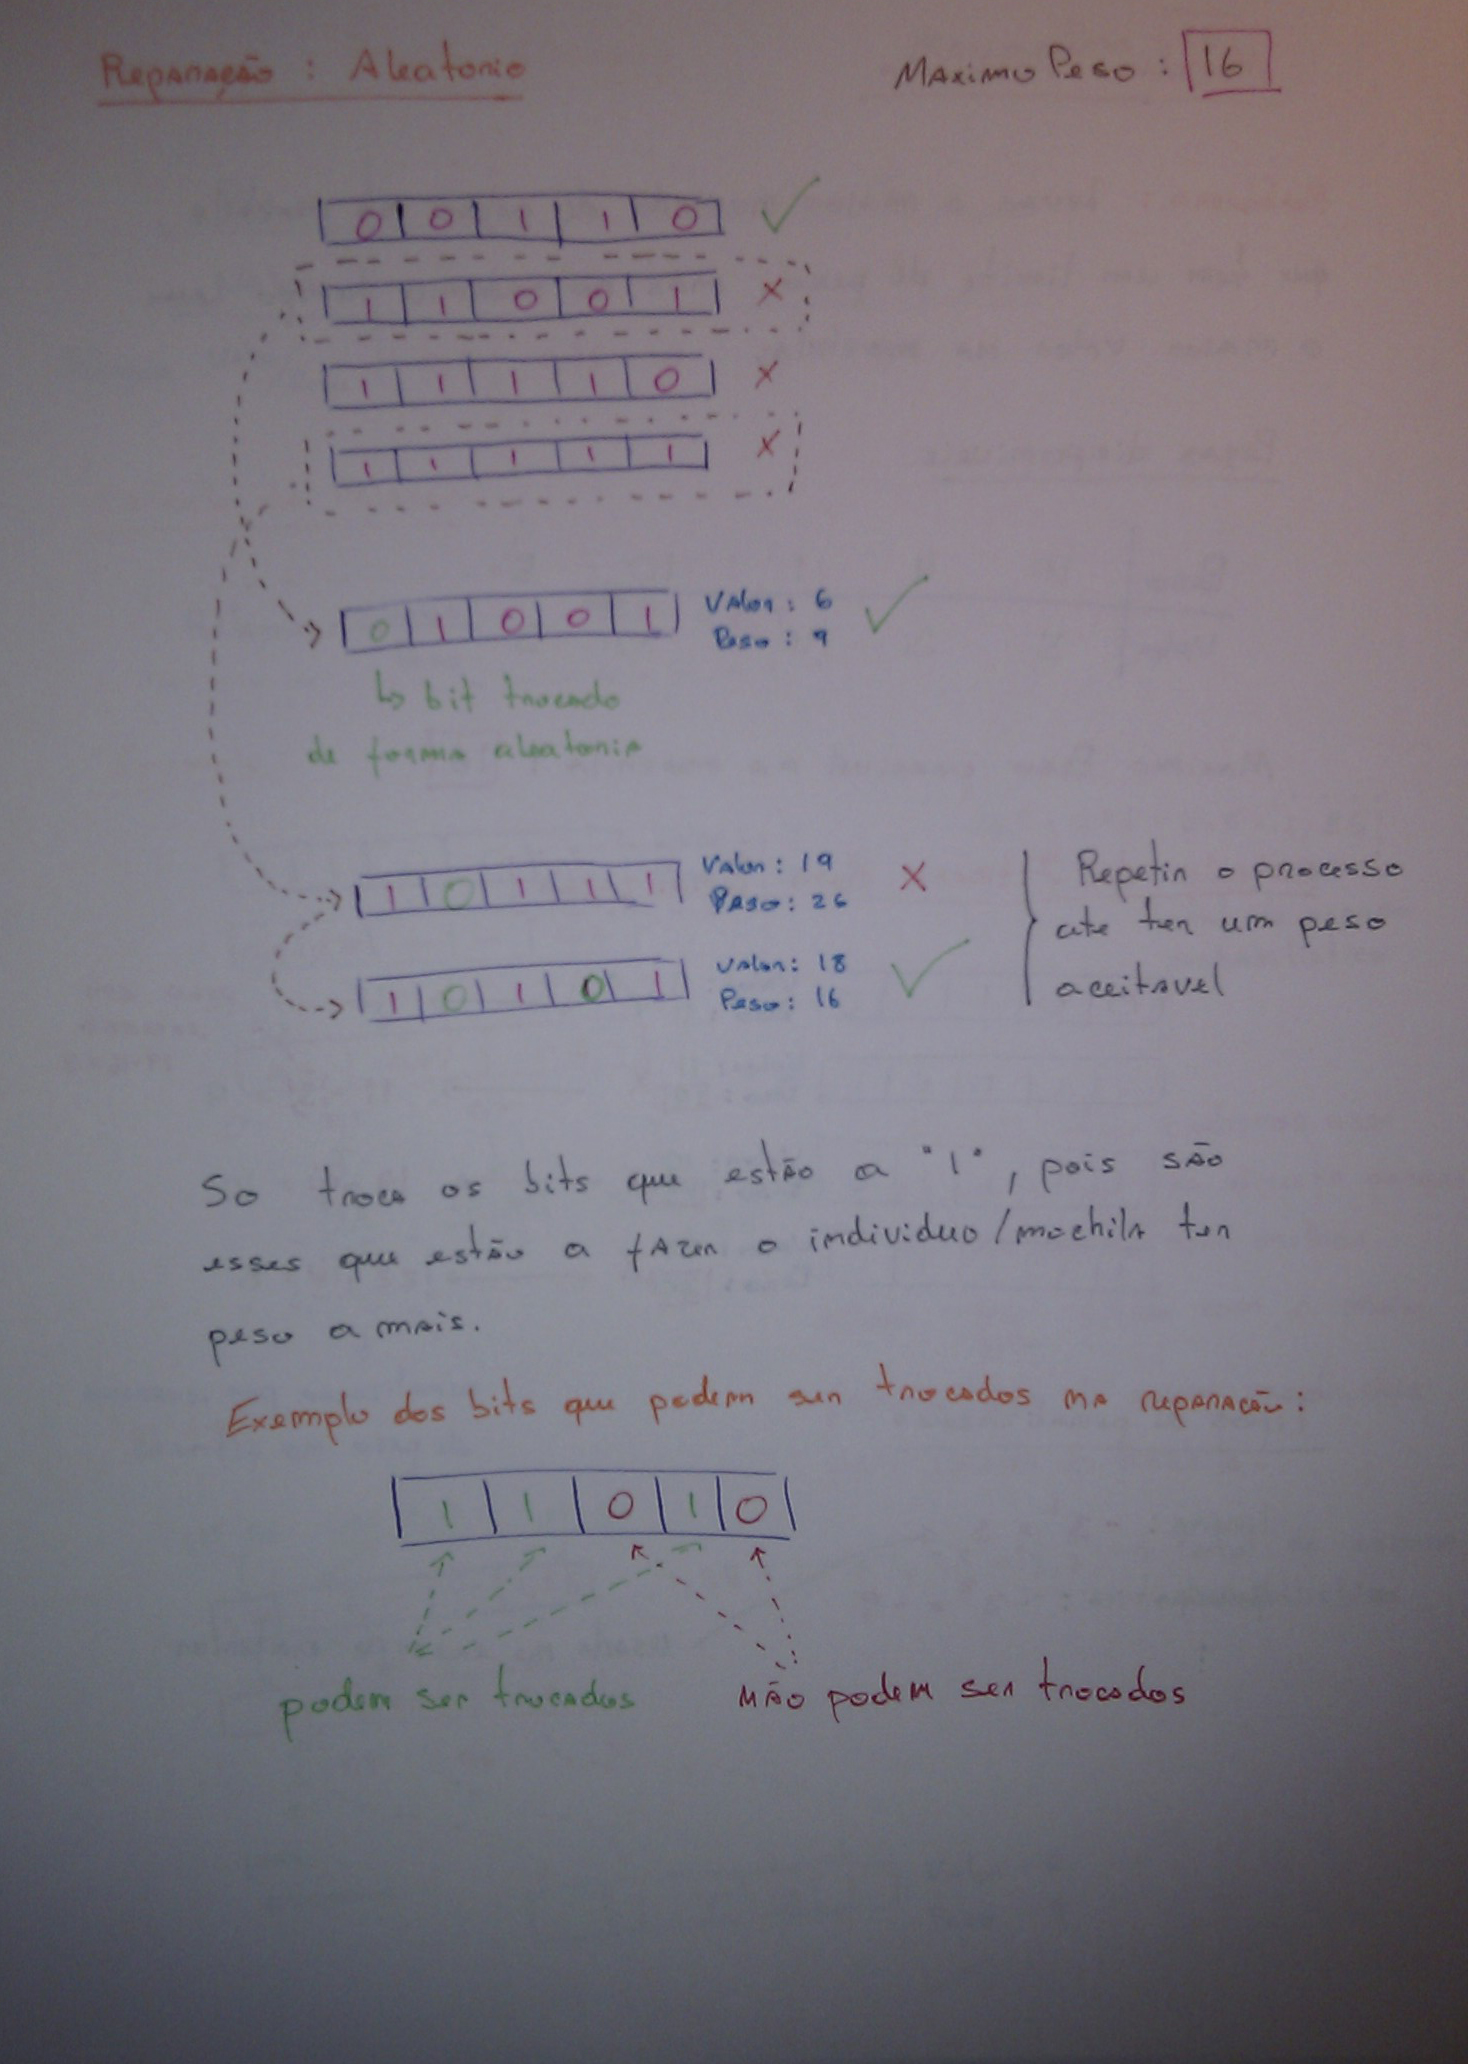 Reparação : Aleatorio
Maximo Peso : 16
0 0 1 1 0
1 1 0 0 1 X
1 1 1 1 0 X
1 1 1 1 1 X
0 1 0 0 1
Valor : 6
Peso : 9
bit trocado
de forma aleatoria
1 0 1 1 1
Valor : 19
Peso : 26
X
1 0 1 0 1
Valor : 18
Peso : 16
Repetir o processo
ate ter um peso
aceitavel
So troca os bits que estão a "1", pois são
esses que estão a fazer o individuo/mochila ter
peso a mais.
Exemplo dos bits que podem ser trocados na reparação :
1 1 0 1 0
podem ser trocados
não podem ser trocados